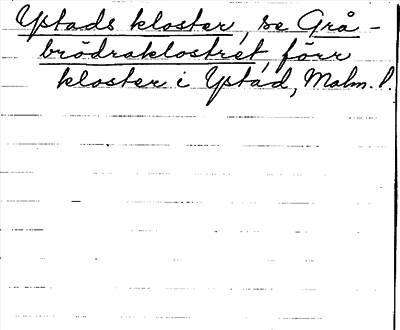 Ystads kloster, se Grå-
brödraklostret, förr
kloster i Ystad, Malm. l.